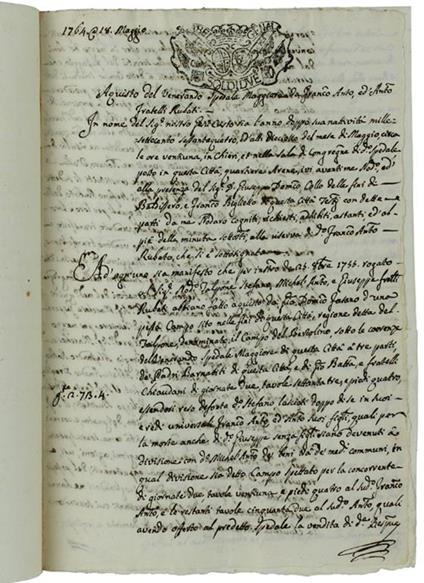 1764 18. Maggio
SOLDI DUE
Acquisto del Venerando Spedale Maggiore da Franco Anto, ed Anto
Fratelli Rubati
In nome del Sigr nostro Gesù Cristo l'anno doppo sua natività mille-
settecento sessantaquattro, D'alli dieciotto del mese di Maggio, circa
le ore ventuna, in Chieri, et nella Sala di Congregne di do Spedale
posto in questa Città, quartiere Arene, ivi avanti me Nod.o, ed'
alla presenza del Sigr D. Giuseppe Domco Collo delle fini di
Baldissero, e Franco di questa Città Testi con dette
parti da me Nodaro cogniti, richiesti, adibiti, astanti, ed al
piè della minuta sottotti, alla riserva di do Franco Anto
Rubato, che si è sottosegnato
Ad ognuno sia manifesto che per instro delli 25. 8bre 1755. rogato
Sigr Nodo Falzone, Stefano, Michel Anto, e Giuseppe frelli
Rubati abbiano fatto acquisto da Domco d'una
pezza Campo sito nelle fini di questa Città, regione detta del
Falzone, denominato il Campo del Bertolino, sotto le coerenze
del Venerando Spedale Maggiore di questa Città a tre parti,
de Padri Barnabiti di questa Città, e di Gio Batta, e fratelli
Chiaudani di giornate due, tavole settanta tre, e piedi quattro,
G. 2. 73. 4.
essendosi reso deffonto do Stefano lasciati doppo di se in suoi
eredi universali Franco Anto, ed Anto suoi figli, quali per
la morte anche di do Giuseppe senza figli siano devenuti a
divisione con do Michel Anto de beni tra de medi communi, in
qual divisione sia detto Campo spettato per la concorrente
di giornate due tavole ventuna e piedi quattro al sudo Franco
Anto, e le restanti tavole cinquanta due al sudo Anto, quali
avendo offerto al predetto Spedale la vendita di da